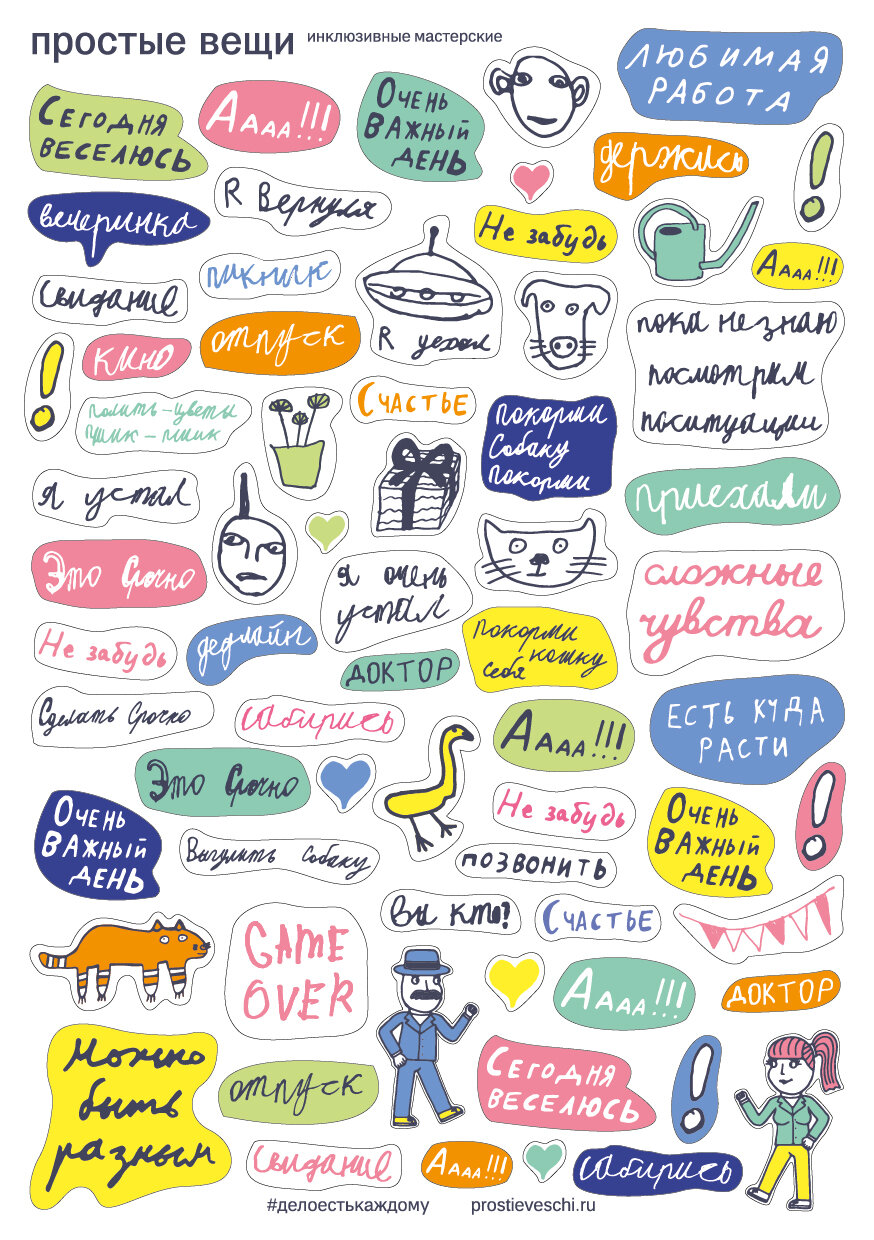 простые вещи
инклюзивные мастерские
ЛЮБИМАЯ
РАБОТА
СЕГОДНЯ
ВЕСЕЛЮСЬ
АААА!!!
ОЧЕНЬ
ВАЖНЫЙ
ДЕНЬ
держись
вечеринка
R Вернулся
Не забудь
АААА!!!
Свидание
пикник
R уехал
пока не знаю
посмотрим
поситуации
кино
отпуск
полить-цветы
пшик-пшик
СЧАСТЬЕ
покорми
Собаку
покорми
я устал
приехали
Это Срочно
я очень
устал
сложные
чувства
Не забудь
дедлайн
ДОКТОР
покорми
кошку
себя
Сделать Срочно
соберись
АААА!!!
ЕСТЬ КУДА
РАСТИ
Это Срочно
ОЧЕНЬ
ВАЖНЫЙ
ДЕНЬ
Не забудь
ОЧЕНЬ
ВАЖНЫЙ
ДЕНЬ
Выгулить Собаку
ПОЗВОНИТЬ
Вы кто?
СЧАСТЬЕ
GAME
OVER
АААА!!!
ДОКТОР
Можно
быть
разным
отпуск
СЕГОДНЯ
ВЕСЕЛЮСЬ
Свидание
АААА!!!
соберись
#делоестькаждому
prostieveschi.ru